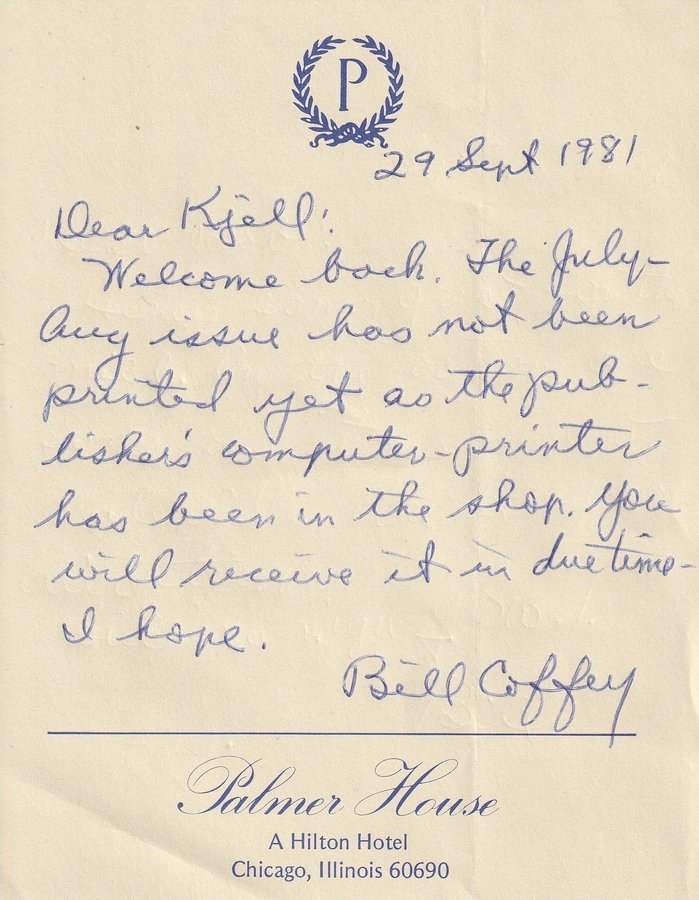 P
29 Sept 1981
Dear Kjell:
Welcome back. The July-
Aug issue has not been
printed yet as the pub-
lisher's computer-printer
has been in the shop. You
will receive it in due time-
I hope.
Bill Coffey
Palmer House
A Hilton Hotel
Chicago, Illinois 60690